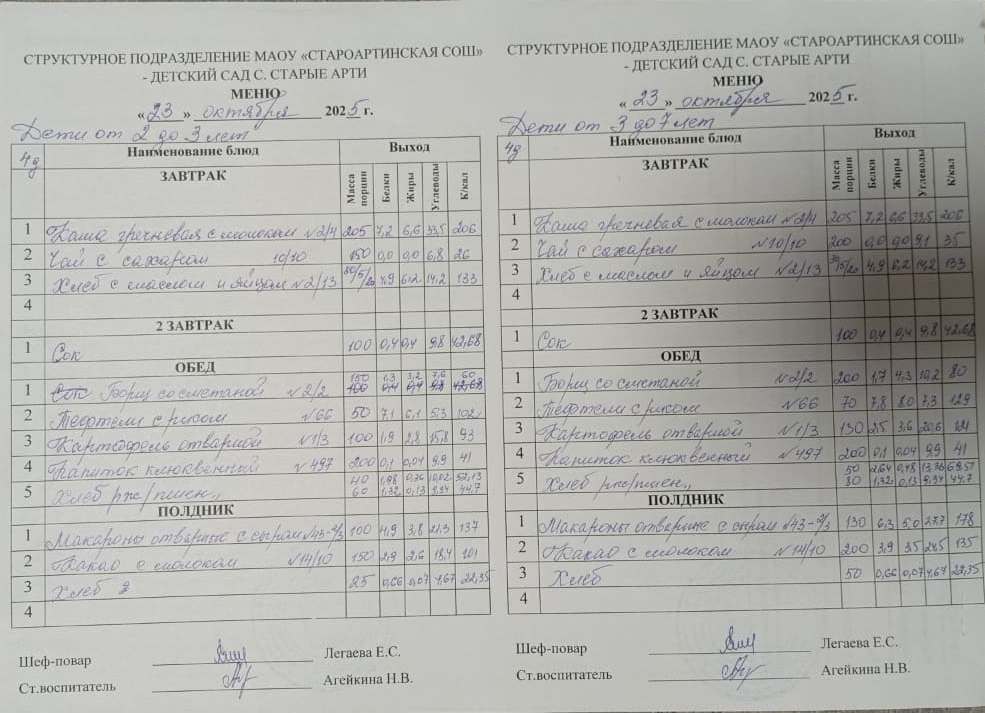 СТРУКТУРНОЕ ПОДРАЗДЕЛЕНИЕ МАОУ «СТАРОАРТИНСКАЯ СОШ»
- ДЕТСКИЙ САД С. СТАРЫЕ АРТИ
МЕНЮ
«23» октября 2025 г.
Дети от 2 до 3 лет
4д Наименование блюд Выход
ЗАВТРАК Масса порции Белки Жиры Углеводы К/кал
1 Каша гречневая с молоком №2/4 205 7,2 6,6 33,5 206
2 Чай с сахаром 10/10 150 0,0 0,0 6,8 26
3 Хлеб с маслом и яйцом №2/13 30/5/20 4,9 6,2 14,2 133
4
2 ЗАВТРАК
1 Сок 100 0,4 0,4 9,8 42,68
ОБЕД
1 Борщ со сметаной №2/2 150 1,3 3,2 7,6 60
2 Тефтели с рисом №66 50 7,1 6,1 5,3 102
3 Картофель отварной №1/3 100 1,9 2,8 15,8 93
4 Напиток клюквенный №497 200 0,1 0,04 9,9 41
5 Хлеб рж/пшен. 40 1,98 0,36 10,02 52,13
60 1,32 0,13 9,34 44,7
ПОЛДНИК
1 Макароны отварные с сыром №43-2/3 100 4,9 3,8 21,3 137
2 Какао с молоком №14/10 150 2,9 2,6 18,4 101
3 Хлеб 25 0,66 0,07 4,67 22,35
4
Шеф-повар Легаева Е.С.
Ст.воспитатель Агейкина Н.В.
СТРУКТУРНОЕ ПОДРАЗДЕЛЕНИЕ МАОУ «СТАРОАРТИНСКАЯ СОШ»
- ДЕТСКИЙ САД С. СТАРЫЕ АРТИ
МЕНЮ
«23» октября 2025 г.
Дети от 3 до 7 лет
4д Наименование блюд Выход
ЗАВТРАК Масса порции Белки Жиры Углеводы К/кал
1 Каша гречневая с молоком №2/4 205 7,2 6,6 33,5 206
2 Чай с сахаром №10/10 200 0,0 0,0 9,1 35
3 Хлеб с маслом и яйцом №2/13 30/5/20 4,9 6,2 14,2 133
4
2 ЗАВТРАК
1 Сок 100 0,4 0,4 9,8 42,68
ОБЕД
1 Борщ со сметаной №2/2 200 1,7 4,3 10,2 80
2 Тефтели с рисом №66 70 7,8 8,0 7,3 129
3 Картофель отварной №1/3 130 2,5 3,6 20,6 121
4 Напиток клюквенный №497 200 0,1 0,04 9,9 41
5 Хлеб рж/пшен. 50 2,64 0,48 13,36 69,51
80 1,32 0,13 9,34 44,7
ПОЛДНИК
1 Макароны отварные с сыром №43-2/3 130 6,3 5,0 27,7 178
2 Какао с молоком №14/10 200 3,9 3,5 24,5 135
3 Хлеб 50 0,66 0,07 4,67 22,35
4
Шеф-повар Легаева Е.С.
Ст.воспитатель Агейкина Н.В.